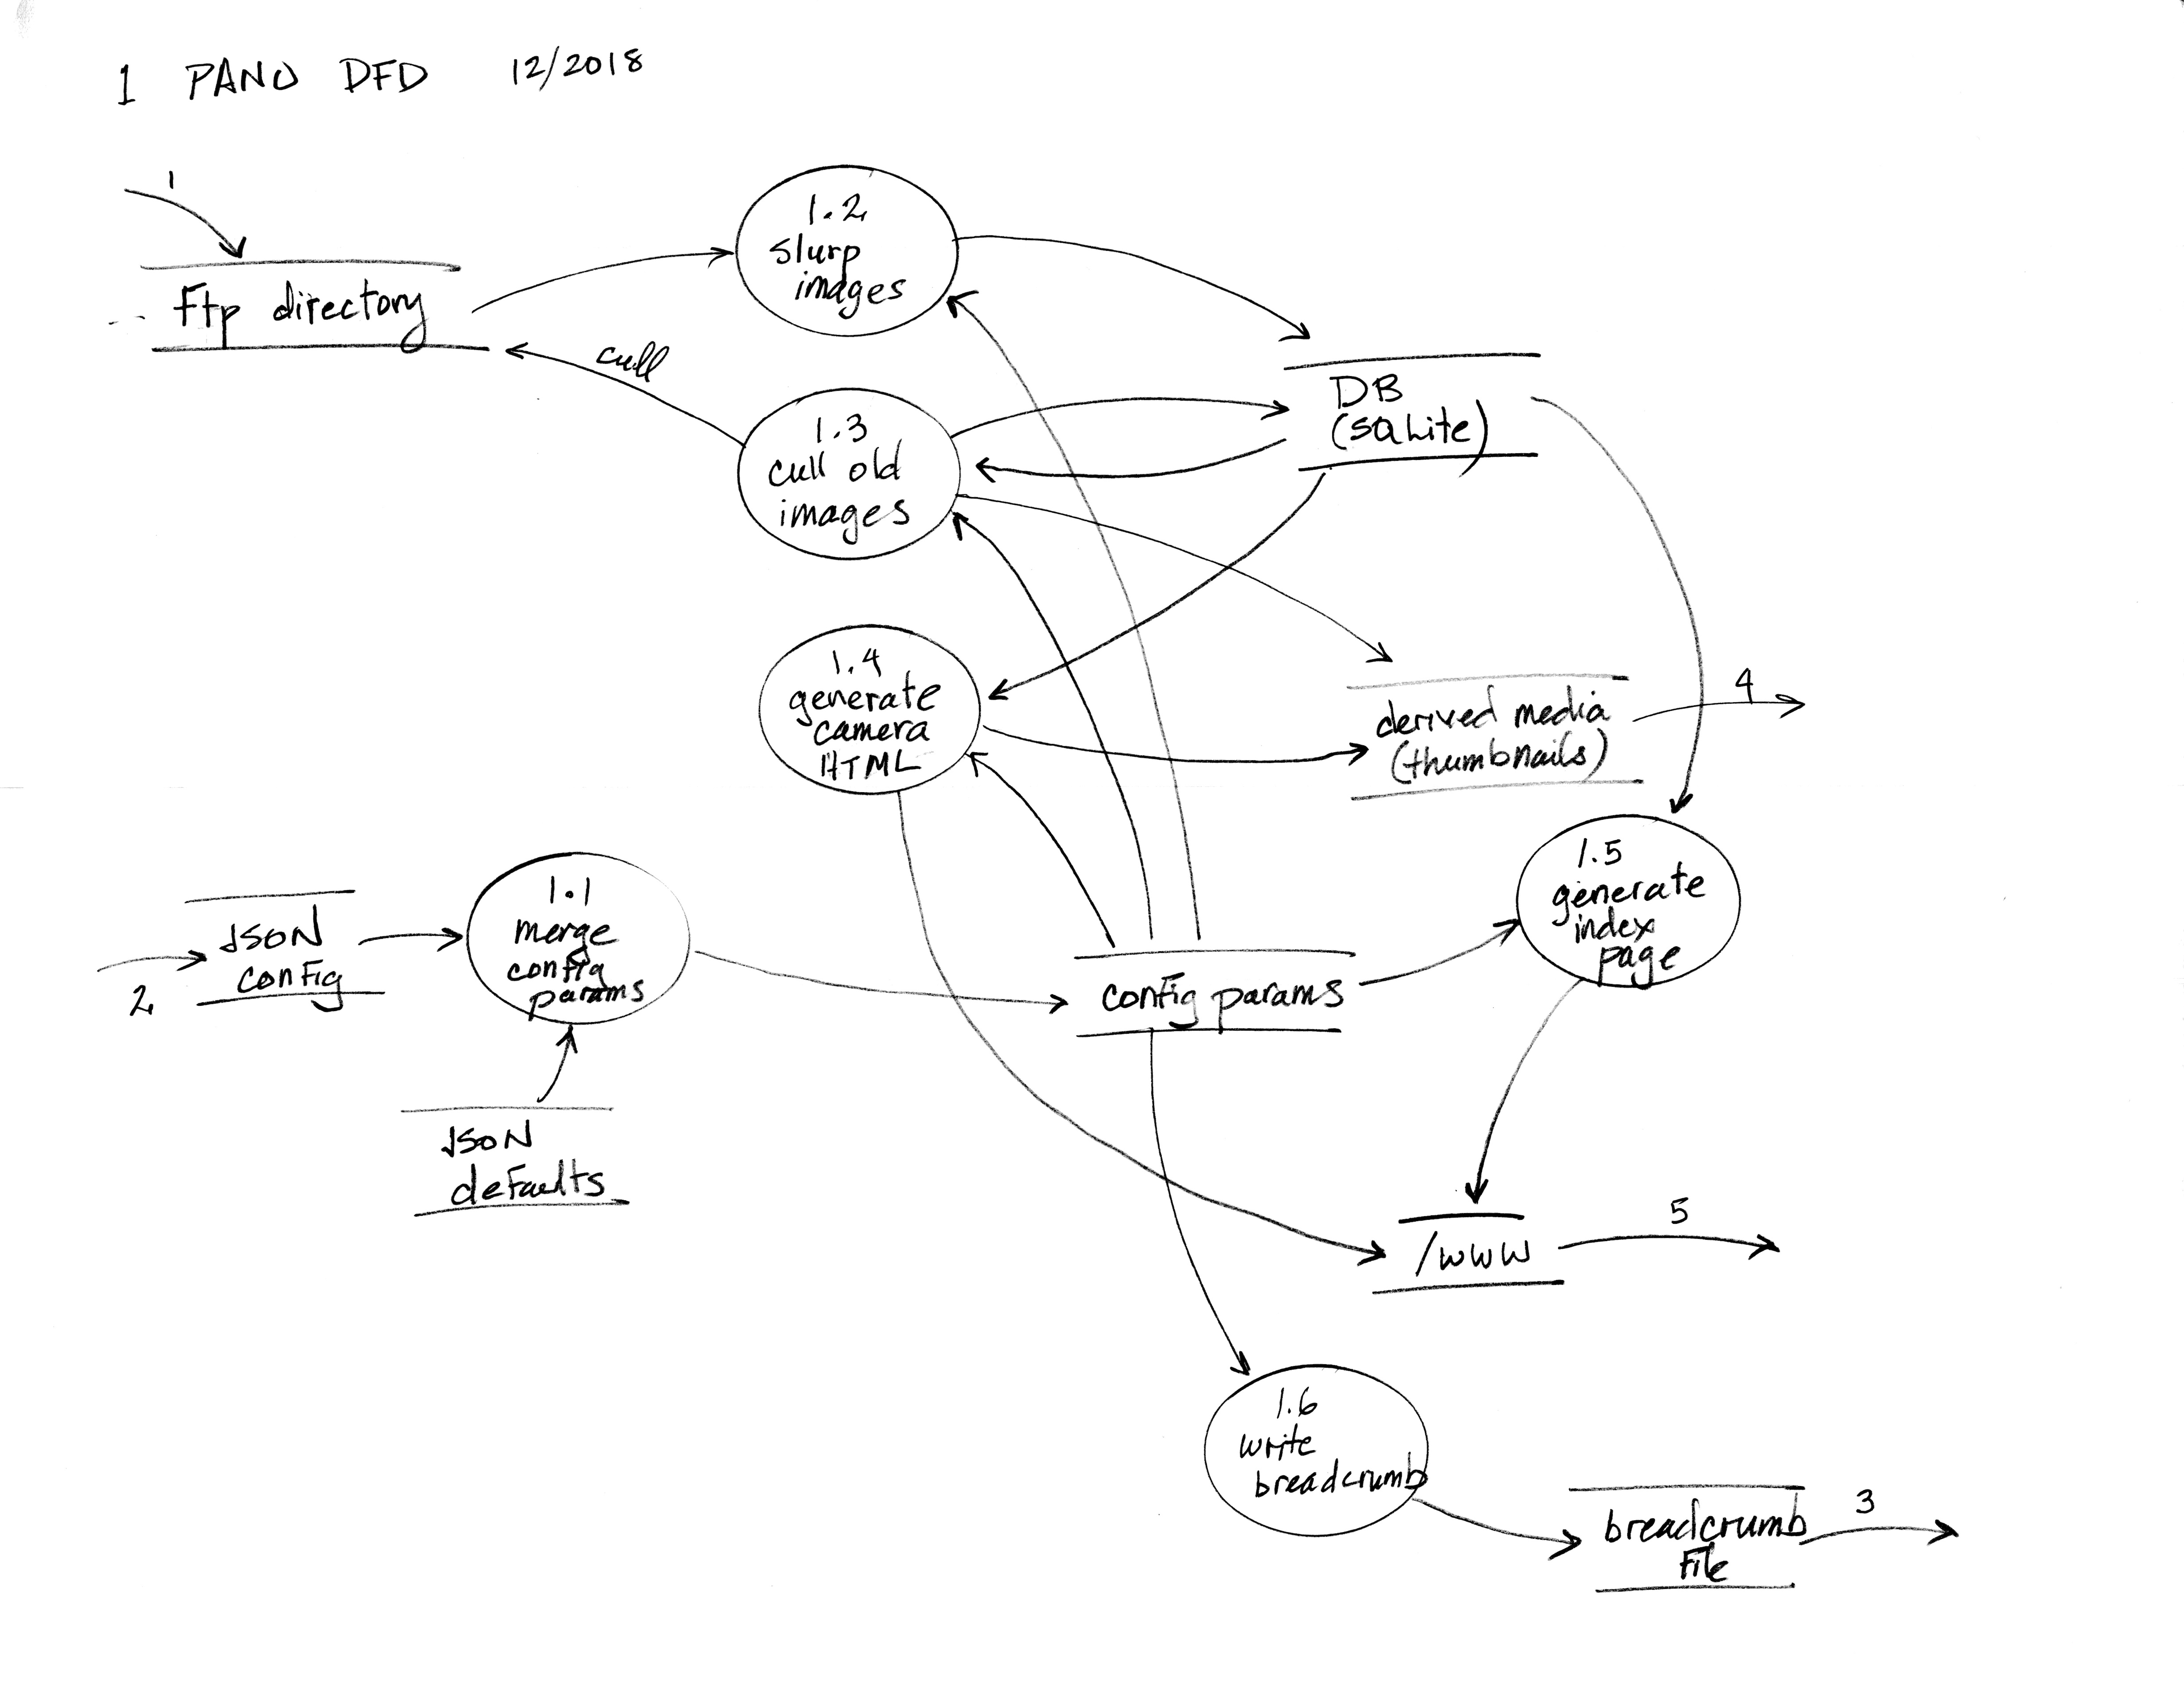 1 PANO DFD 12/2018
1
ftp directory
1.2
slurp
images
cull
1.3
cull old
images
DB
(SQLite)
1.4
generate
camera
HTML
derived media
(thumbnails)
4
1.5
generate
index
page
JSON
config
2
1.1
merge
config
params
config params
JSON
defaults
/www
5
1.6
write
breadcrumb
breadcrumb
file
3